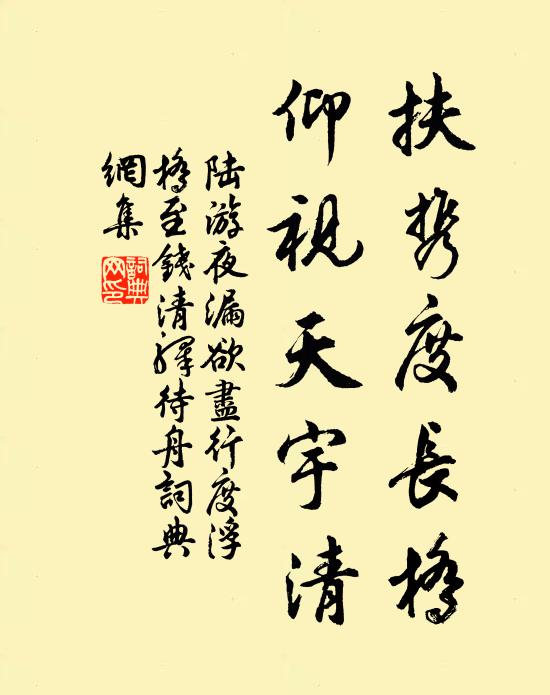 扶携度長橋
仰視天宇清
陆游夜漏欲盡行度浮
橋至錢清驛待舟詞典
網集
詞典
网印